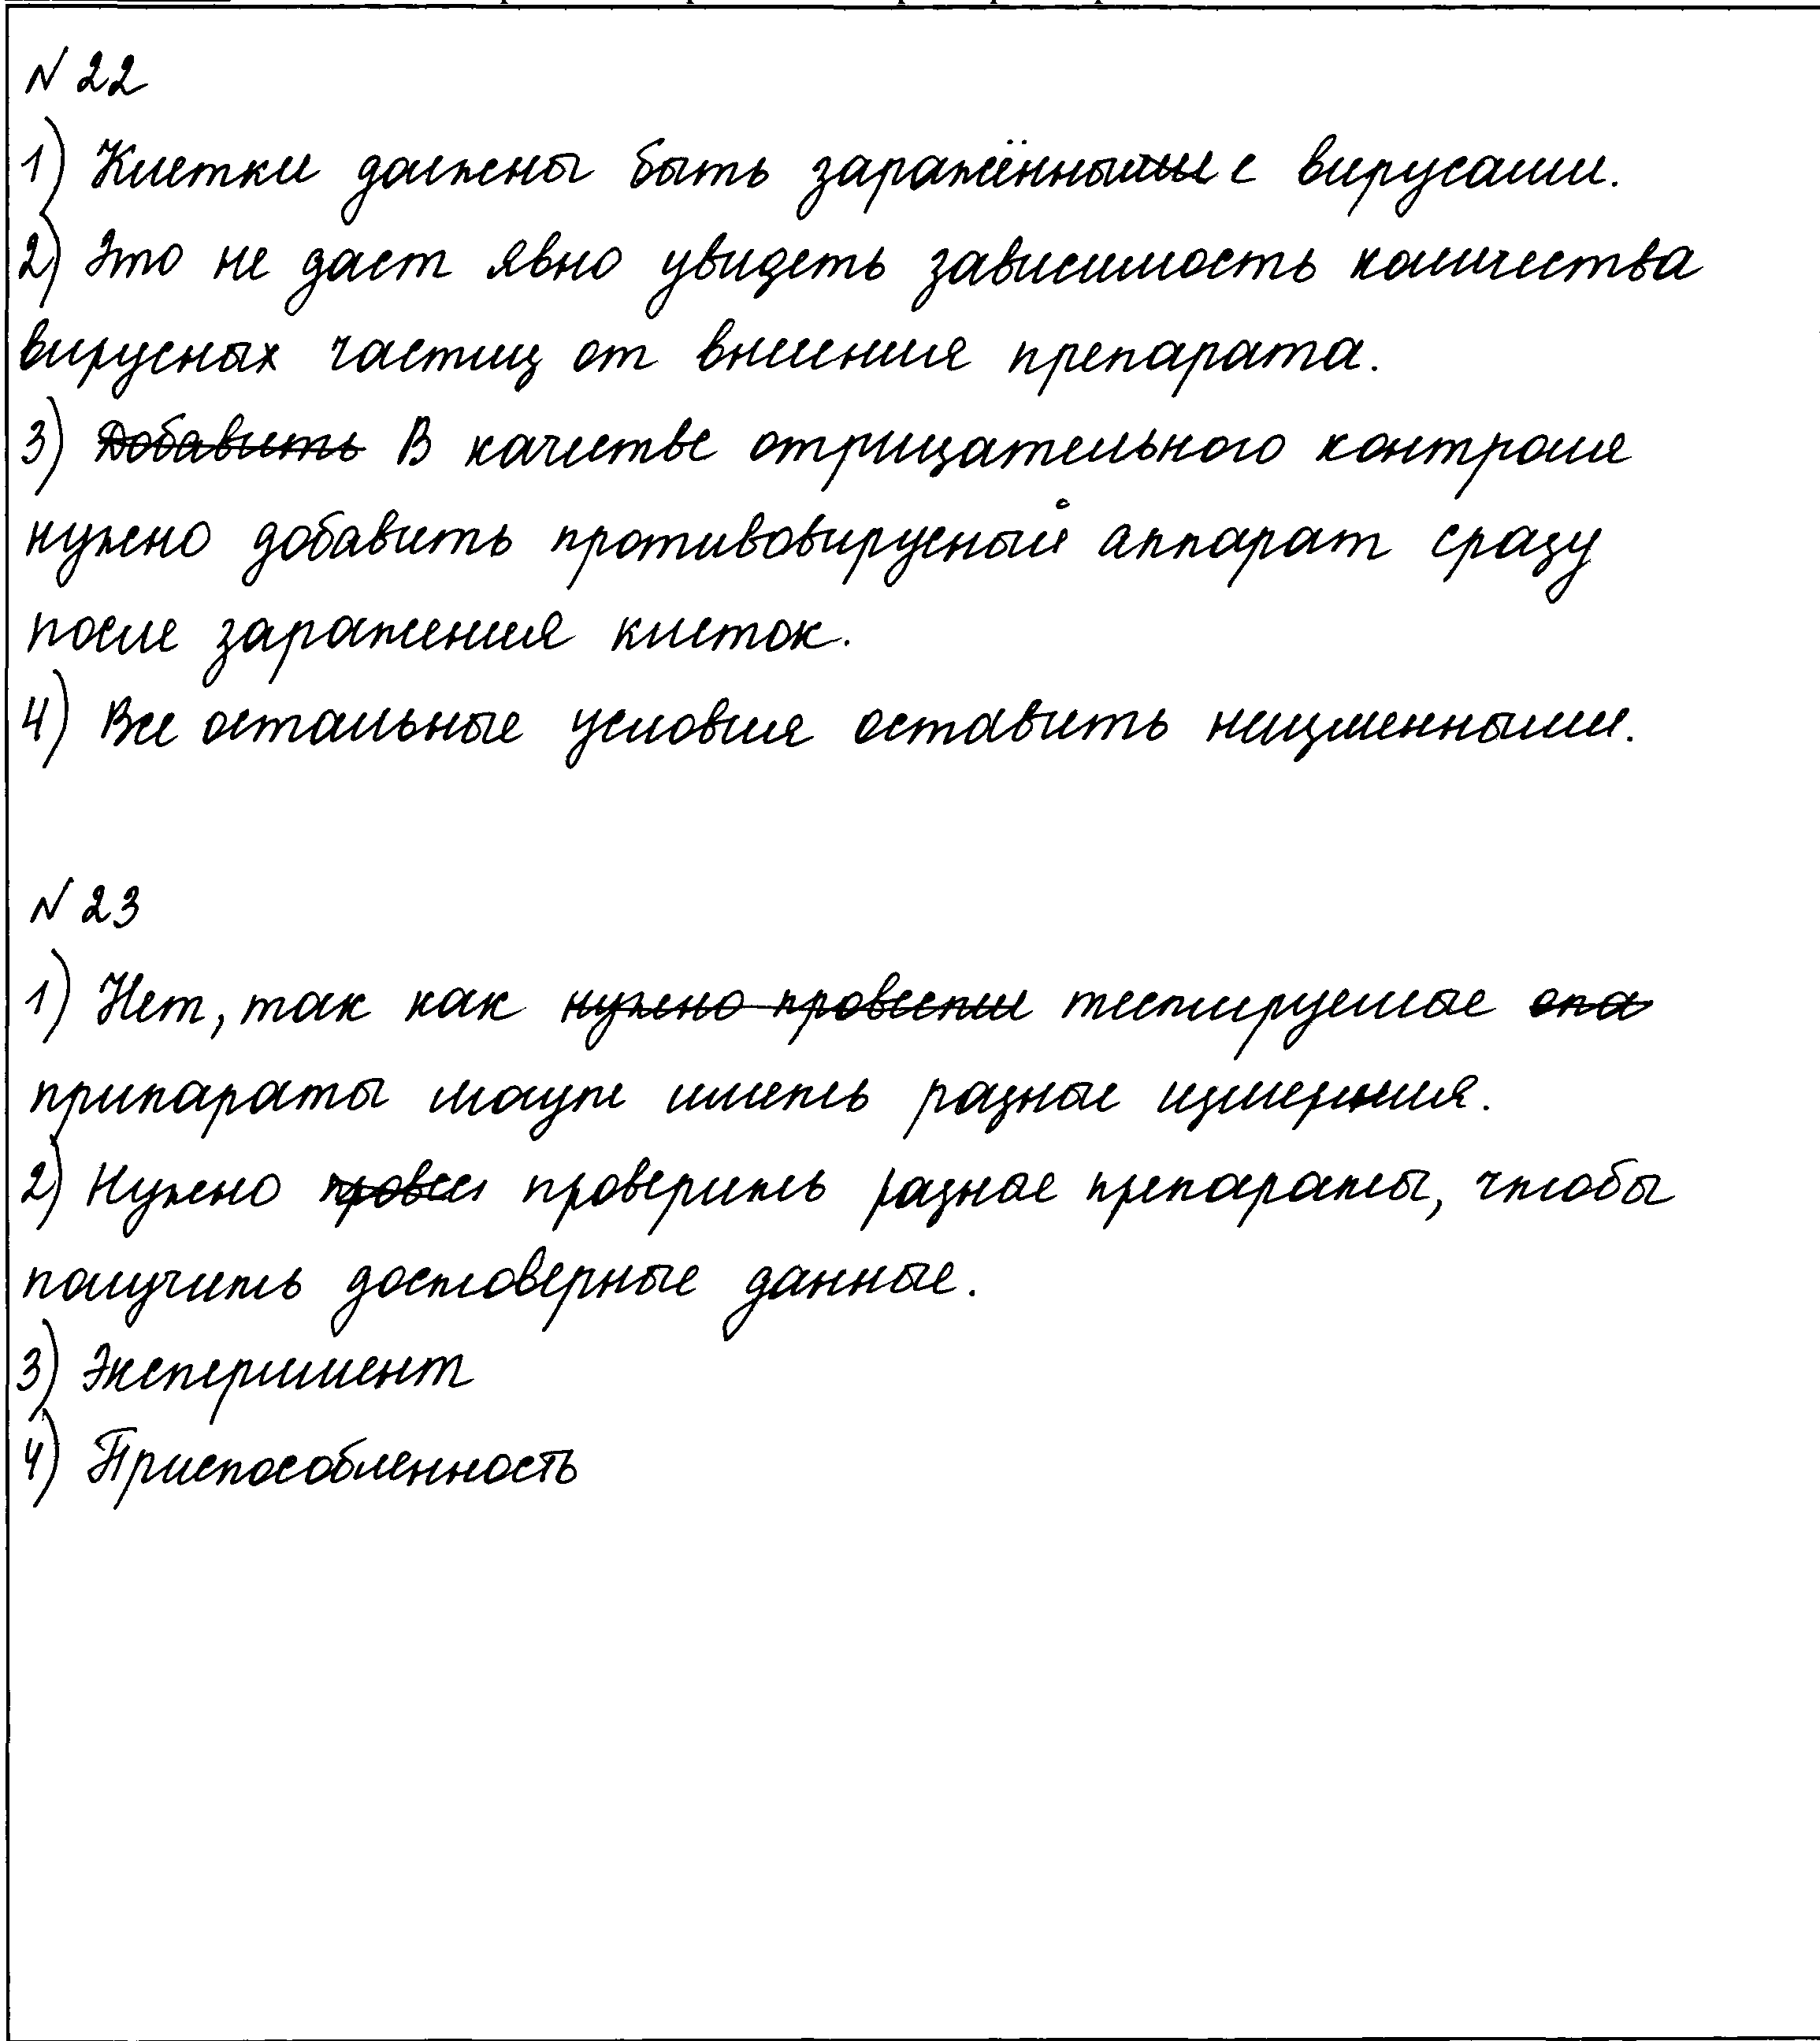 № 22
1) Клетки должны быть заражённые с вирусами.
2) Это не даст явно увидеть зависимость количества
вирусных частиц от внесения препарата.
3) Добавить В качестве отрицательного контроля
нужно добавить противовирусный аппарат сразу
после заражения клеток.
4) Все остальные условия оставить неизменными.
№ 23
1) Нет, так как нужно провести тестируемые
припараты могут иметь разные измерения.
2) Нужно провес проверить разные препараты, чтобы
получить достоверные данные.
3) Эксперимент
4) Приспособленность